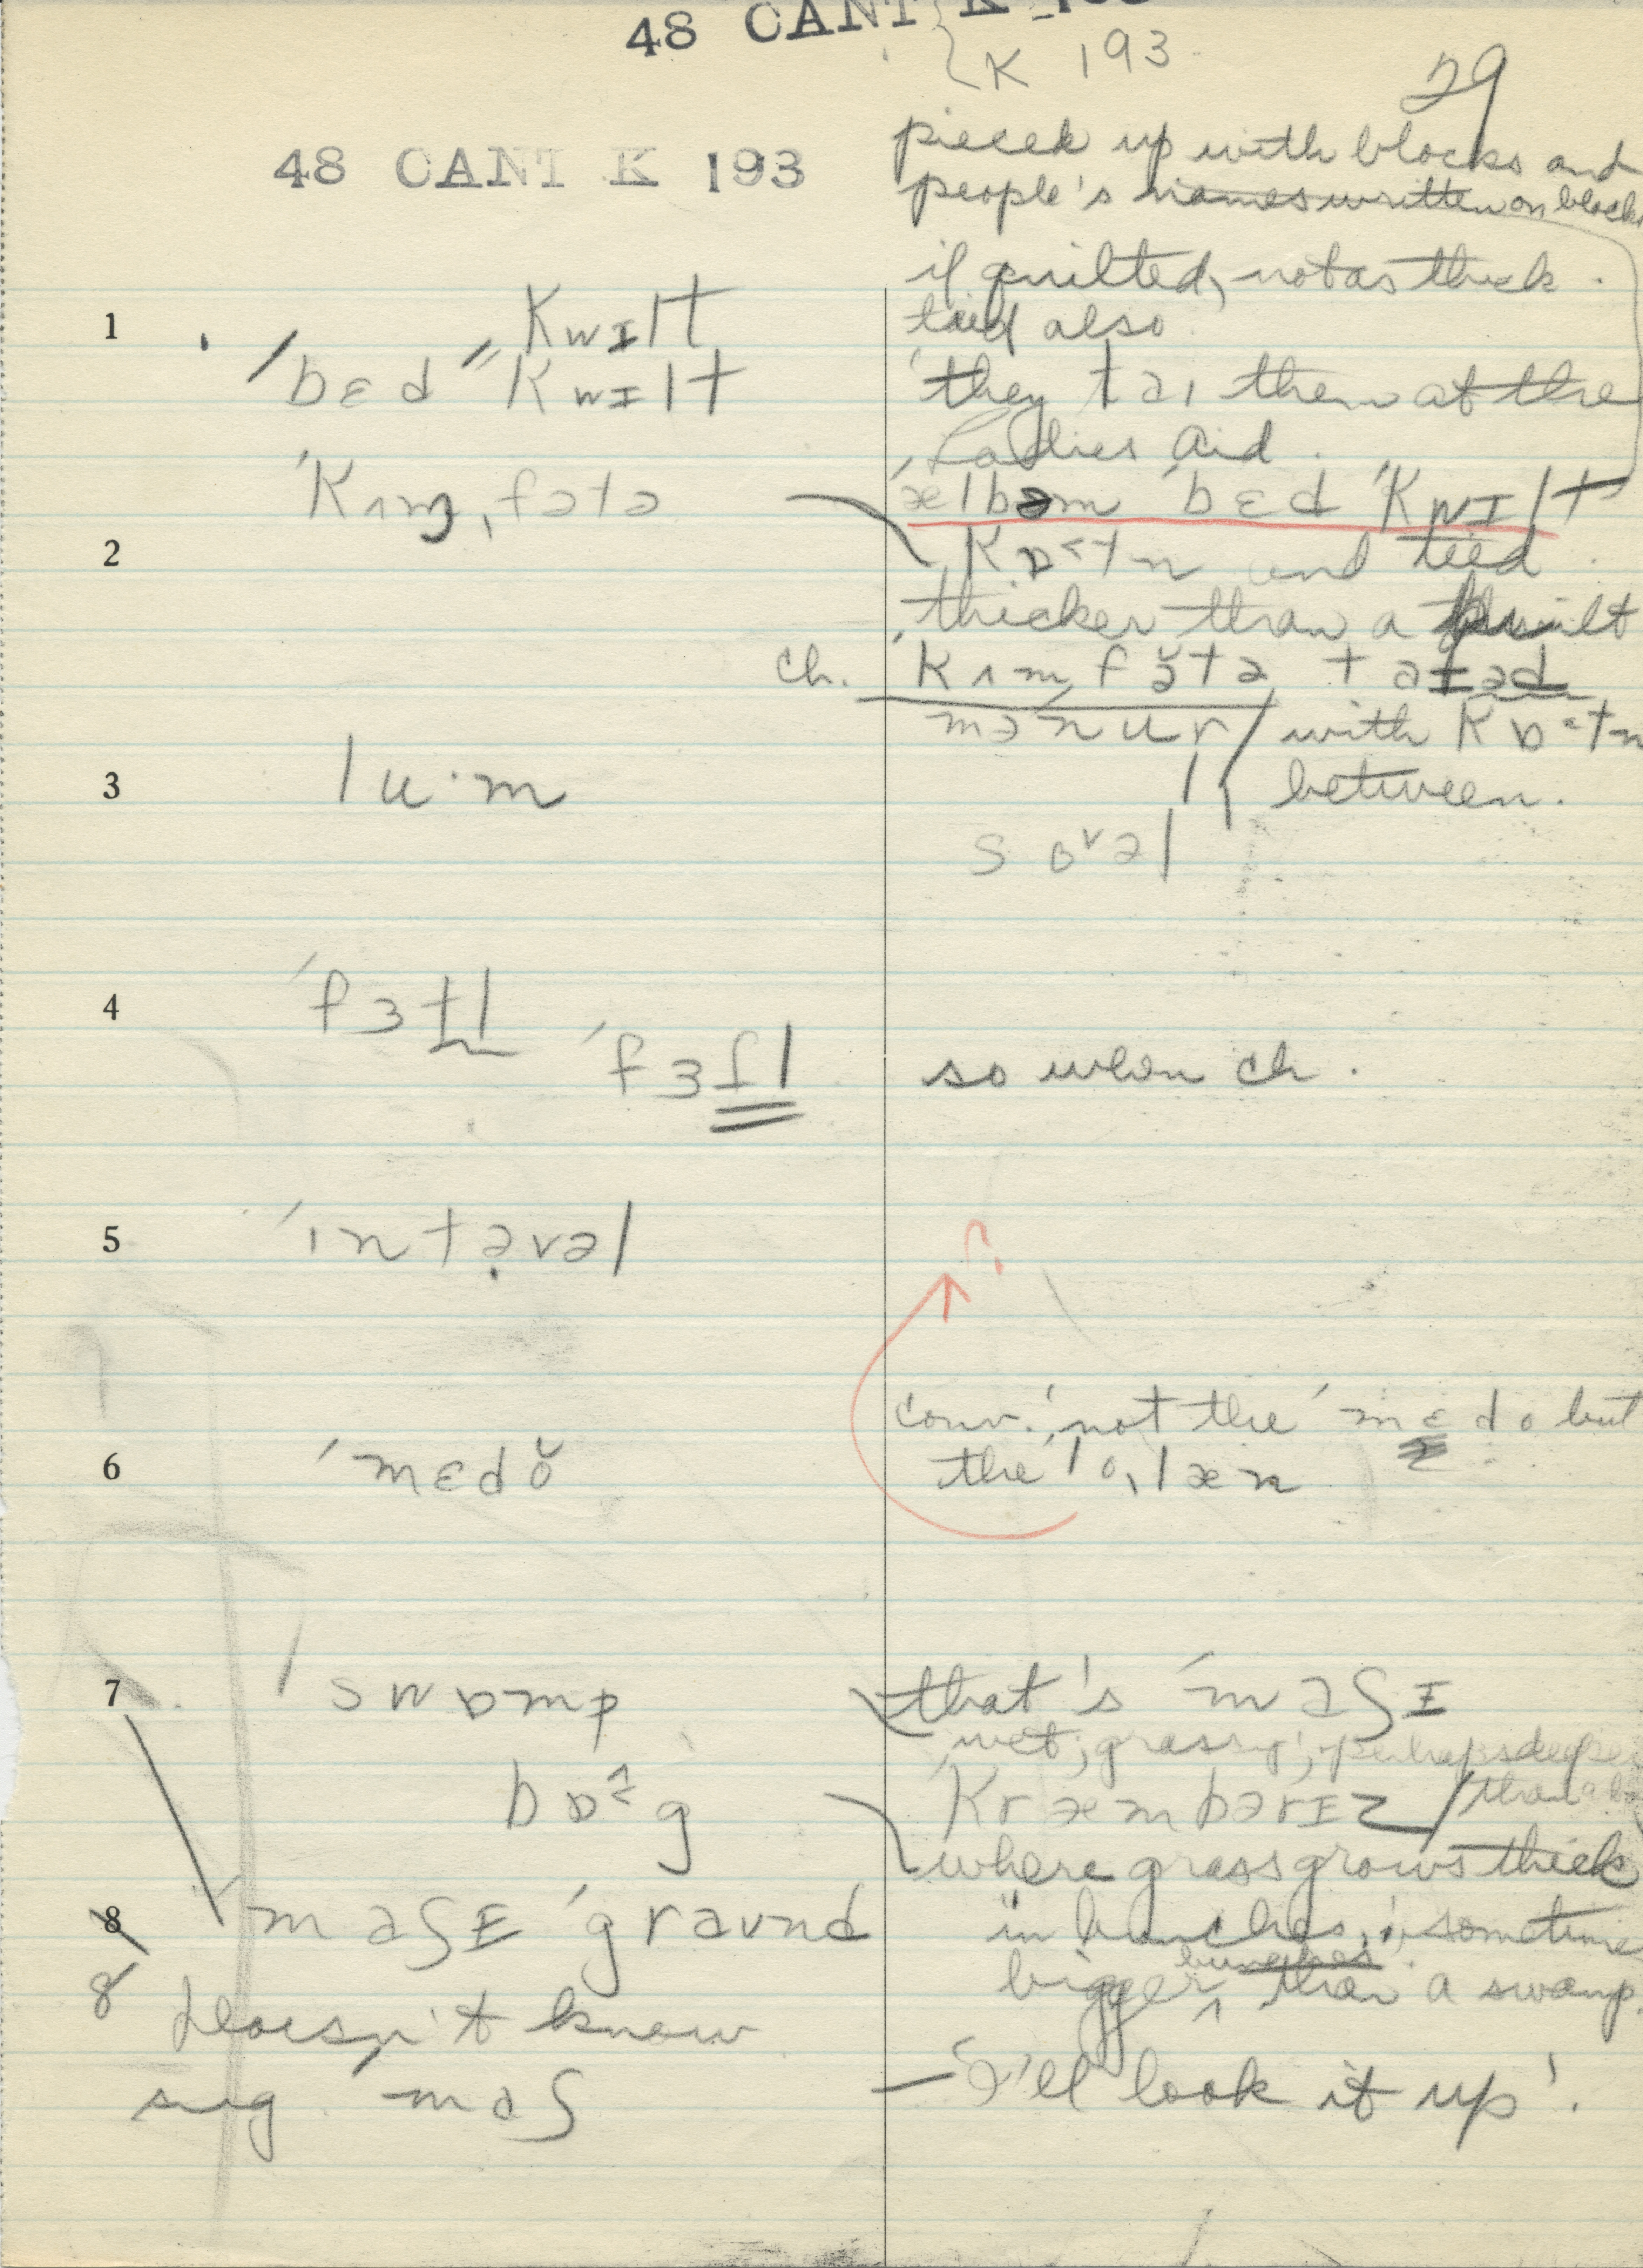 48 CANT K 193
K 193
29
48 CANT K 193
pieced up with blocks and
people's names written on blocks
if quilted, not as thick.
tied also
1 kwɪlt
ˈbɛd ˈˈkwɪlt
'they taɪ them at the
Ladies Aid.
ˈkʌmˌfətə
ˈælbəm ˈbɛd ˈkwɪlt
2 kɒ<tn and tied.
thicker than a quilt
ch. ˈkʌmfə̆tə taɪəd
with kɒ<tn
between.
mənur
3 lu·m
sɒᵛəl
4 ˈfɜtl
ˈfɜʃl so when ch.
5 ˈɪntəvəl
?
conv. 'not the ˈmɛdo but
6 ˈmɛdŏ the ˈloˌlæn
7 swɒmp that's ˈmaʃɪ
wet, grassy, perhaps deeper
than a
bɒ<g ˈkræmbərɪz
where grass grows thick
8 ˈmaʃɪ ˈgraʊnd in bunches; sometime
bunches
bigger than a swamp.
8 doesn't know
sug. maʃ — 'I'll look it up'.